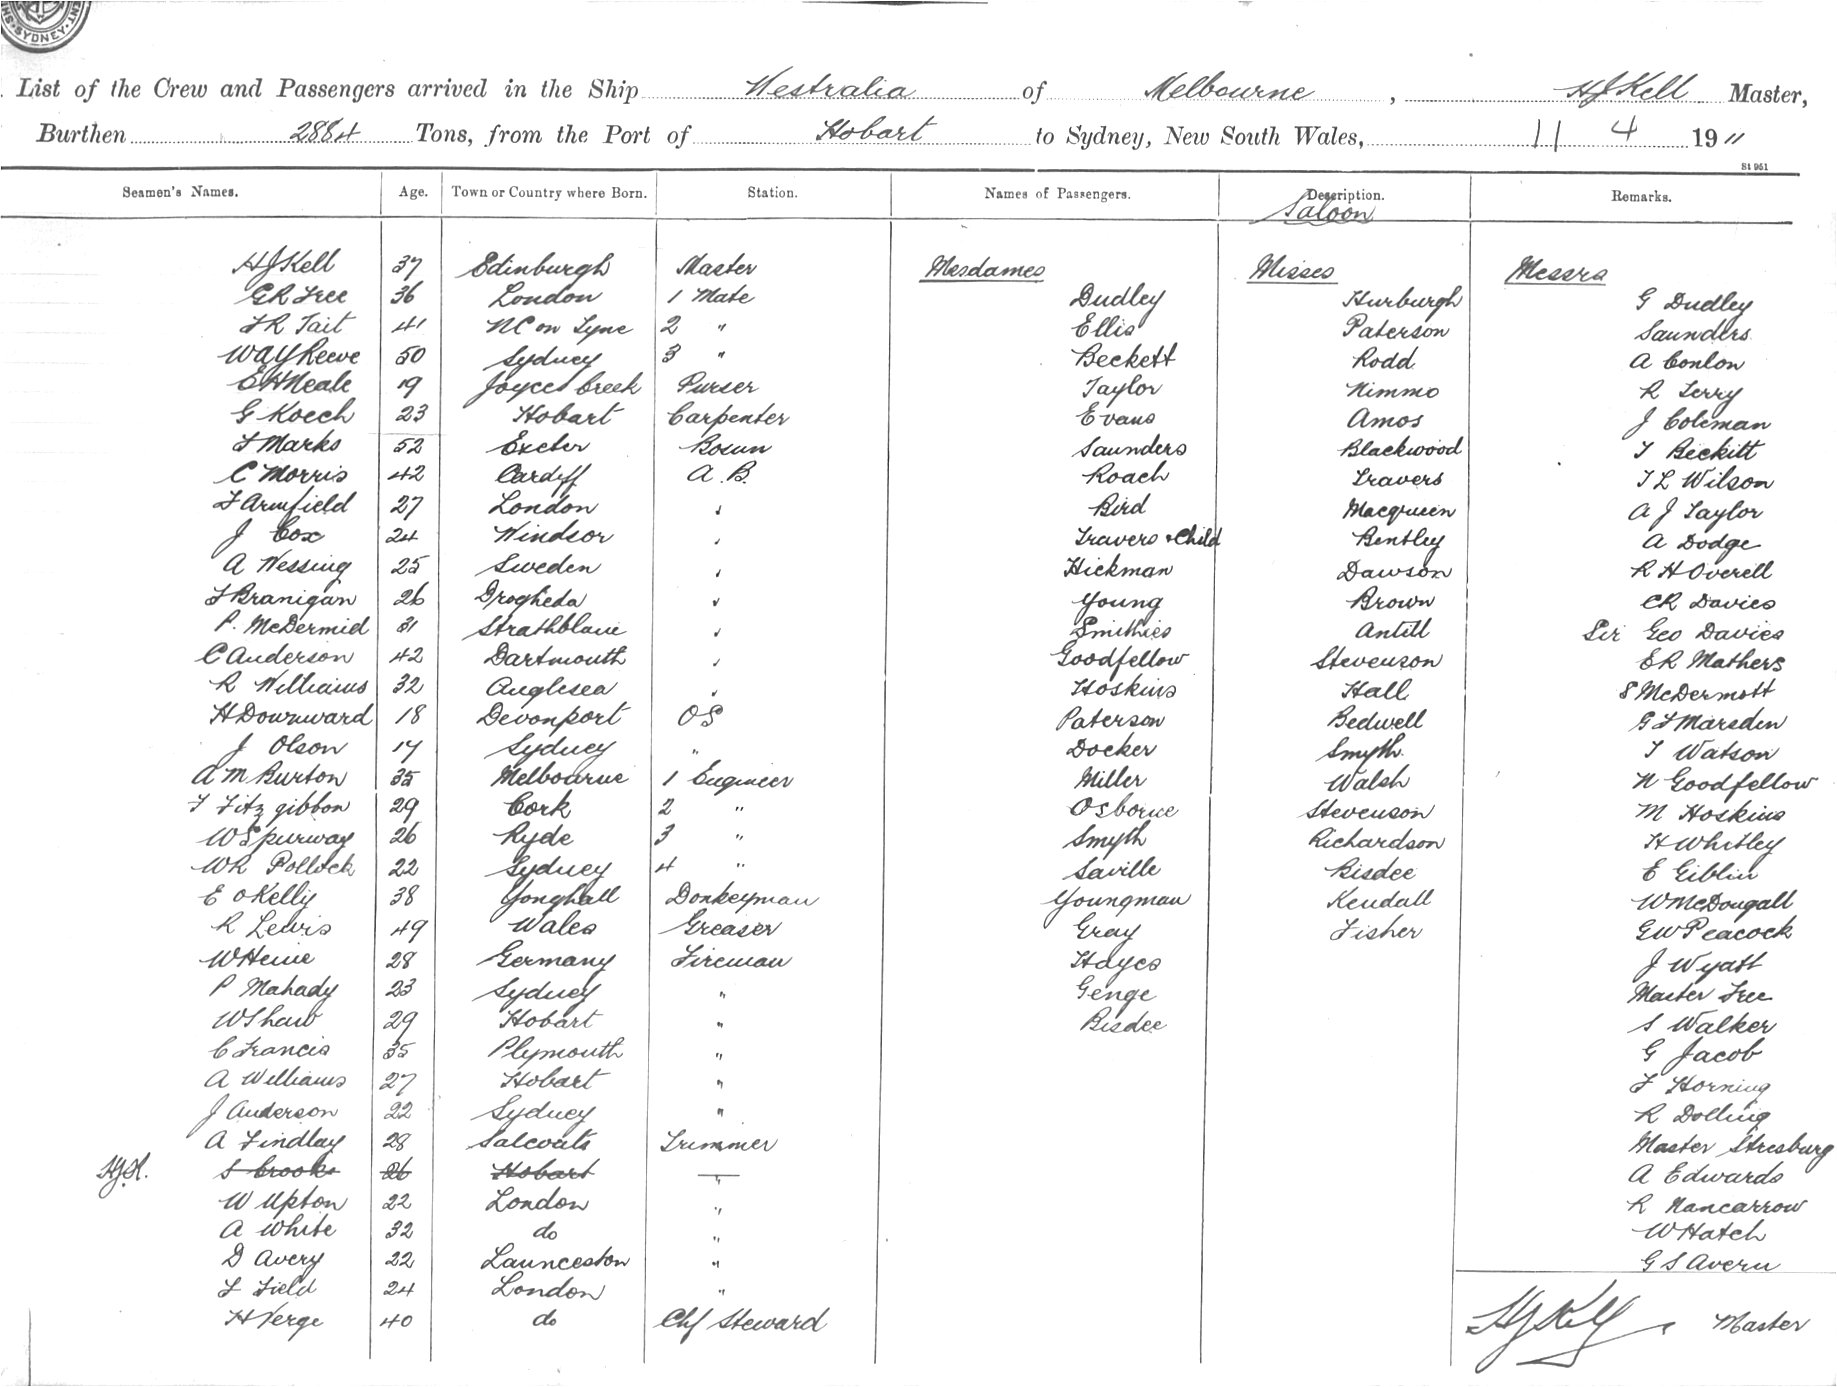 SYDNEY
List of the Crew and Passengers arrived in the Ship Westralia of Melbourne, HJKell Master,
Burthen 2884 Tons, from the Port of Hobart to Sydney, New South Wales, 11 4 19 11
S1 951
Seamen's Names. Age. Town or Country where Born. Station. Names of Passengers. Description. Remarks.
Saloon
HJKell 37 Edinburgh Master Mesdames Misses Messrs
GR Free 36 London 1 Mate Dudley Hurburgh G Dudley
R Tait 41 NC on Tyne 2 " Ellis Paterson Saunders
Reeve 50 Sydney 3 " Beckett Rodd A Conlon
EHNeale 19 Joyces Creek Purser Taylor Nimmo R Terry
G Koech 23 Hobart Carpenter Evans Amos J Coleman
Marks 52 Exeter Bosun Saunders Blackwood T Beckitt
C Morris 42 Cardiff A.B. Roach Travers T L Wilson
Armfield 27 London " Bird Macqueen A J Taylor
J Cox 24 Windsor " Travers & Child Bentley A Dodge
A Wessing 25 Sweden " Hickman Dawson R H Overell
Branigan 26 Drogheda " Young Brown CR Davies
P. McDermid 31 Strathblane " Smithies Antill Sir Geo Davies
C Anderson 42 Dartmouth " Goodfellow Stevenson ER Mathers
R Williams 32 Anglesea " Hoskins Hall S McDermott
H Downward 18 Devonport OS Paterson Bedwell G F Marsden
J Olson 17 Sydney " Docker Smyth T Watson
A M Burton 35 Melbourne 1 Engineer Miller Walsh N Goodfellow
T Fitzgibbon 29 Cork 2 " Osborne Stevenson M Hoskins
W Spurway 26 Ryde 3 " Smyth Richardson H Whitley
WR Pollock 22 Sydney 4 " Saville Bisdee E Giblin
E OKelly 38 Yonghall Donkeyman Youngman Kendall W McDougall
R Lewis 49 Wales Greaser Gray Fisher GW Peacock
W Heine 28 Germany Fireman Hayes J Wyatt
P Mahady 23 Sydney " Genge Master Free
W Shaw 29 Hobart " Bisdee S Walker
C Francis 35 Plymouth " G Jacob
A Williams 27 Hobart " F Horning
J Anderson 22 Sydney " R Dolling
A Findlay 28 Salcoats Trimmer Master Stresburg
HJK. S Crooks 26 Hobart " A Edwards
W Upton 22 London " R Nancarrow
A White 32 do " W Hatch
D Avery 22 Launceston " G S Avern
F Field 24 London "
H Verge 40 do Chf Steward HJKell Master